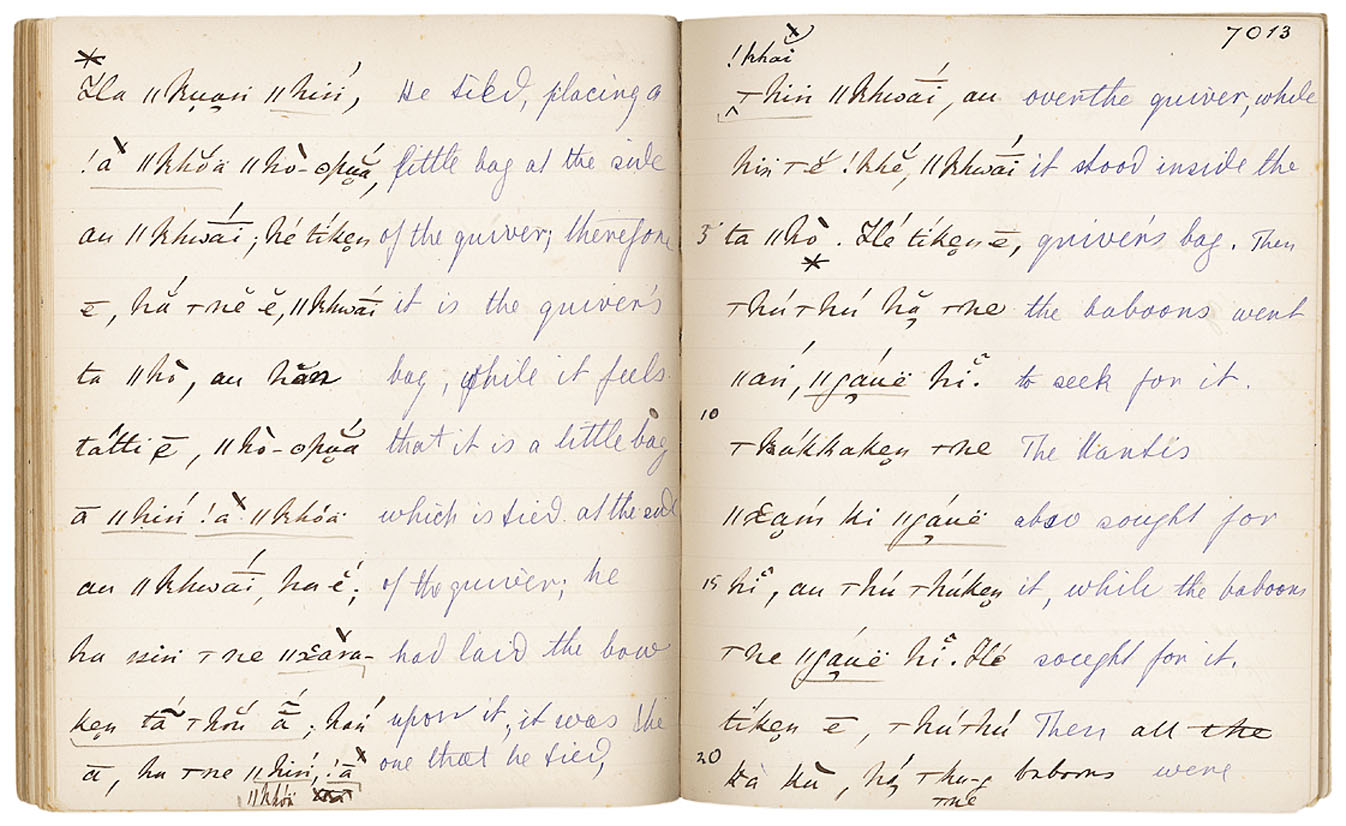 Ha ǁkuạṅ ǁhiń, He tied, placing a
!à ǁkhŏ́ä ǁhò-ʘpuắ, little bag at the side
au ǁkhwā́í; hé tíkẹn of the quiver; therefore
ē, hắ ǂnĕ ĕ, ǁkhwā́í it is the quiver's
ta ǁhò, au hăn bag, while it feels
tátti ē, ǁhò-ʘpuắ that it is a little bag
ā ǁhiń !à ǁkhóä which is tied at the side
au ǁkhwā́í, ha ĕ́; of the quiver; he
ha ǂne had laid the bow
kẹn upon it, it was the
ā, ha ǂne ǁhiń, !à one that he tied,
ǁkhóä
7013
!khăì
ǂhiń ǁkhwā́í, au over the quiver, while
hiń ǂĕ́ !khĕ́, ǁkhwā́í it stood inside the
5 ta ǁhò. Hé tíkẹn ē, quiver's bag. Then
ǂhú ǂhú hă ǂne the baboons went
ǁań, ǁgáuë hĩ. to seek for it.
10
ǂkákkakẹn ǂne The Mantis
ǁxạḿ ki ǁgáuë also sought for
15 hĩ, au ǂhú ǂhúkẹn it, while the baboons
ǂne ǁgáuë hĩ. Hé sought for it.
tíkẹn ē, ǂhú ǂhú Then all the
20 kà kū, baboons were
ǂne